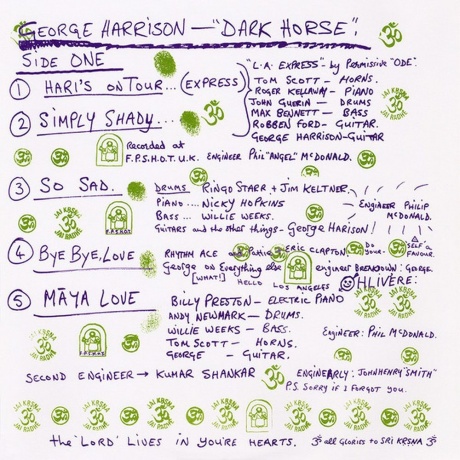 GEORGE HARRISON — "DARK HORSE".
SIDE ONE
① HARI'S ON TOUR... (EXPRESS)
"L.A. EXPRESS" - by Permissive "ODE".
TOM SCOTT - HORNS.
ROGER KELLAWAY - PIANO
JOHN GUERIN - DRUMS
MAX BENNETT - BASS
ROBBEN FORD - GUITAR.
GEORGE HARRISON - GUITAR
② SIMPLY SHADY...
Recorded at
F.P.S.H.O.T. U.K. ENGINEER PHIL "ANGEL" McDONALD.
③ SO SAD.
DRUMS RINGO STARR + JIM KELTNER.
PIANO .... NICKY HOPKINS
BASS ... WILLIE WEEKS.
GUITARS and the other things - GEORGE HARISON!
ENGINEER PHILIP McDONALD.
④ BYE BYE, LOVE
RHYTHM ACE and Pattie ERIC CLAPTON
DO YOUR SELF A FAVOUR.
George on Everything else
[WHAT!]
HELLO LOS ANGELES
George.
OHLIVERE:
⑤ MĀYA LOVE
BILLY PRESTON - ELECTRIC PIANO
ANDY NEWMARK - DRUMS.
WILLIE WEEKS - BASS.
TOM SCOTT - HORNS.
GEORGE - GUITAR.
ENGINEER: PHIL McDONALD.
SECOND ENGINEER → KUMAR SHANKAR
ENGINEARLY: JOHNHENRY "SMITH"
P.S. SORRY IF I FORGOT YOU.
JAI KRSNA ॐ JAI RADHE
the 'LORD' LIVES IN YOU'RE HEARTS.
ॐ all GLORIES TO SRI KRSNA ॐ